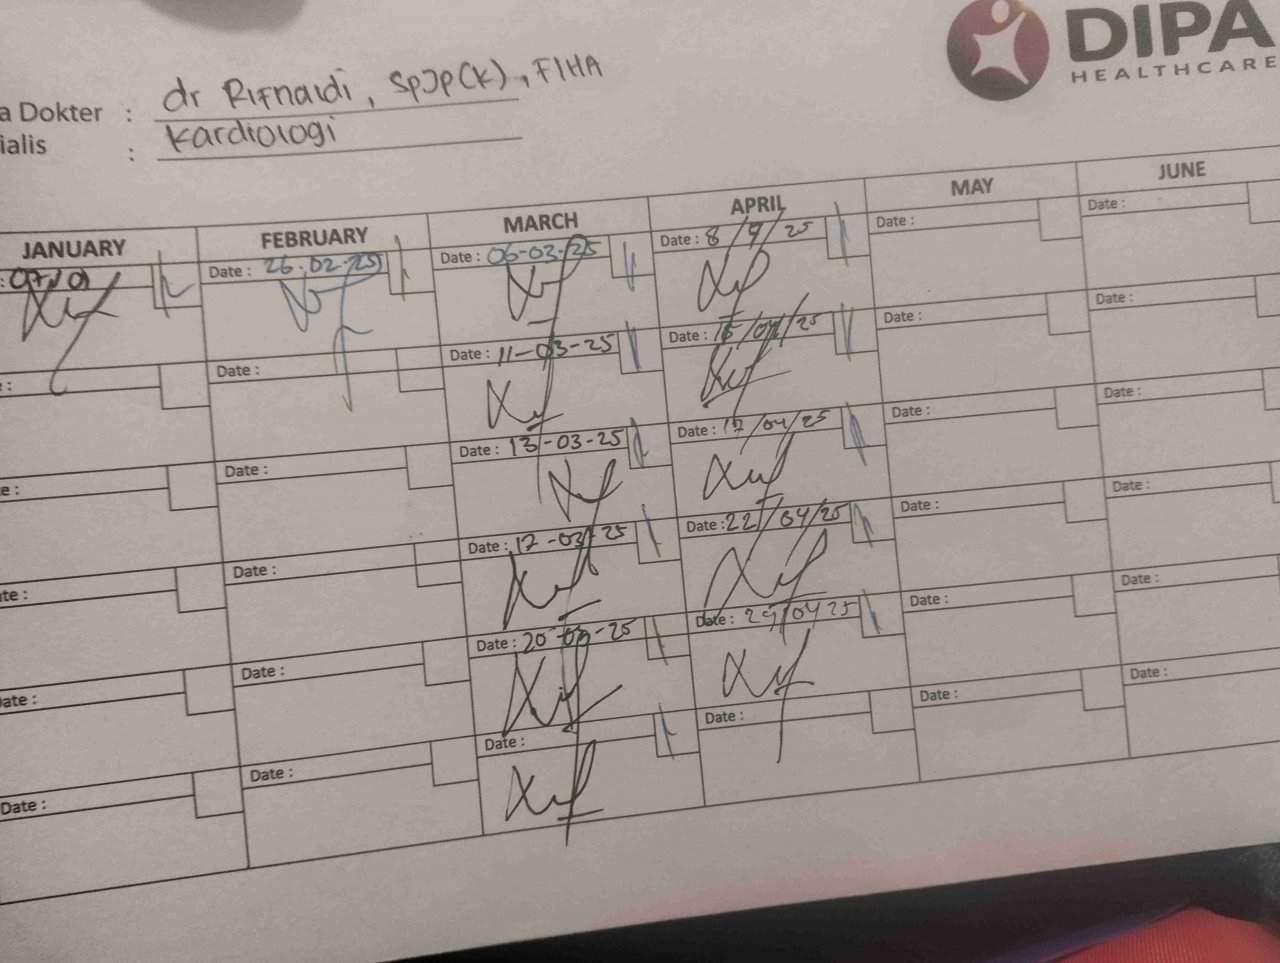 DIPA
HEALTHCARE
a Dokter : dr Rifnaldi, SpJP(K), FIHA
ialis : Kardiologi
JANUARY FEBRUARY MARCH APRIL MAY JUNE
: 07/01 Date : 26-02-25 Date : 06-03-25 Date : 8/4/25 Date : Date :
e : Date : Date : 11-03-25 Date : 15/04/25 Date : Date :
e : Date : Date : 13-03-25 Date : 17/04/25 Date : Date :
te : Date : Date : 17-03-25 Date : 22/04/25 Date : Date :
ate : Date : Date : 20-03-25 Date : 29/04 25 Date : Date :
Date : Date : Date : Date : Date : Date :